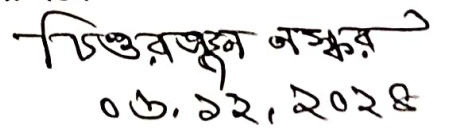 চিত্তরঞ্জন নস্কর
০৬.১২.২০২৪